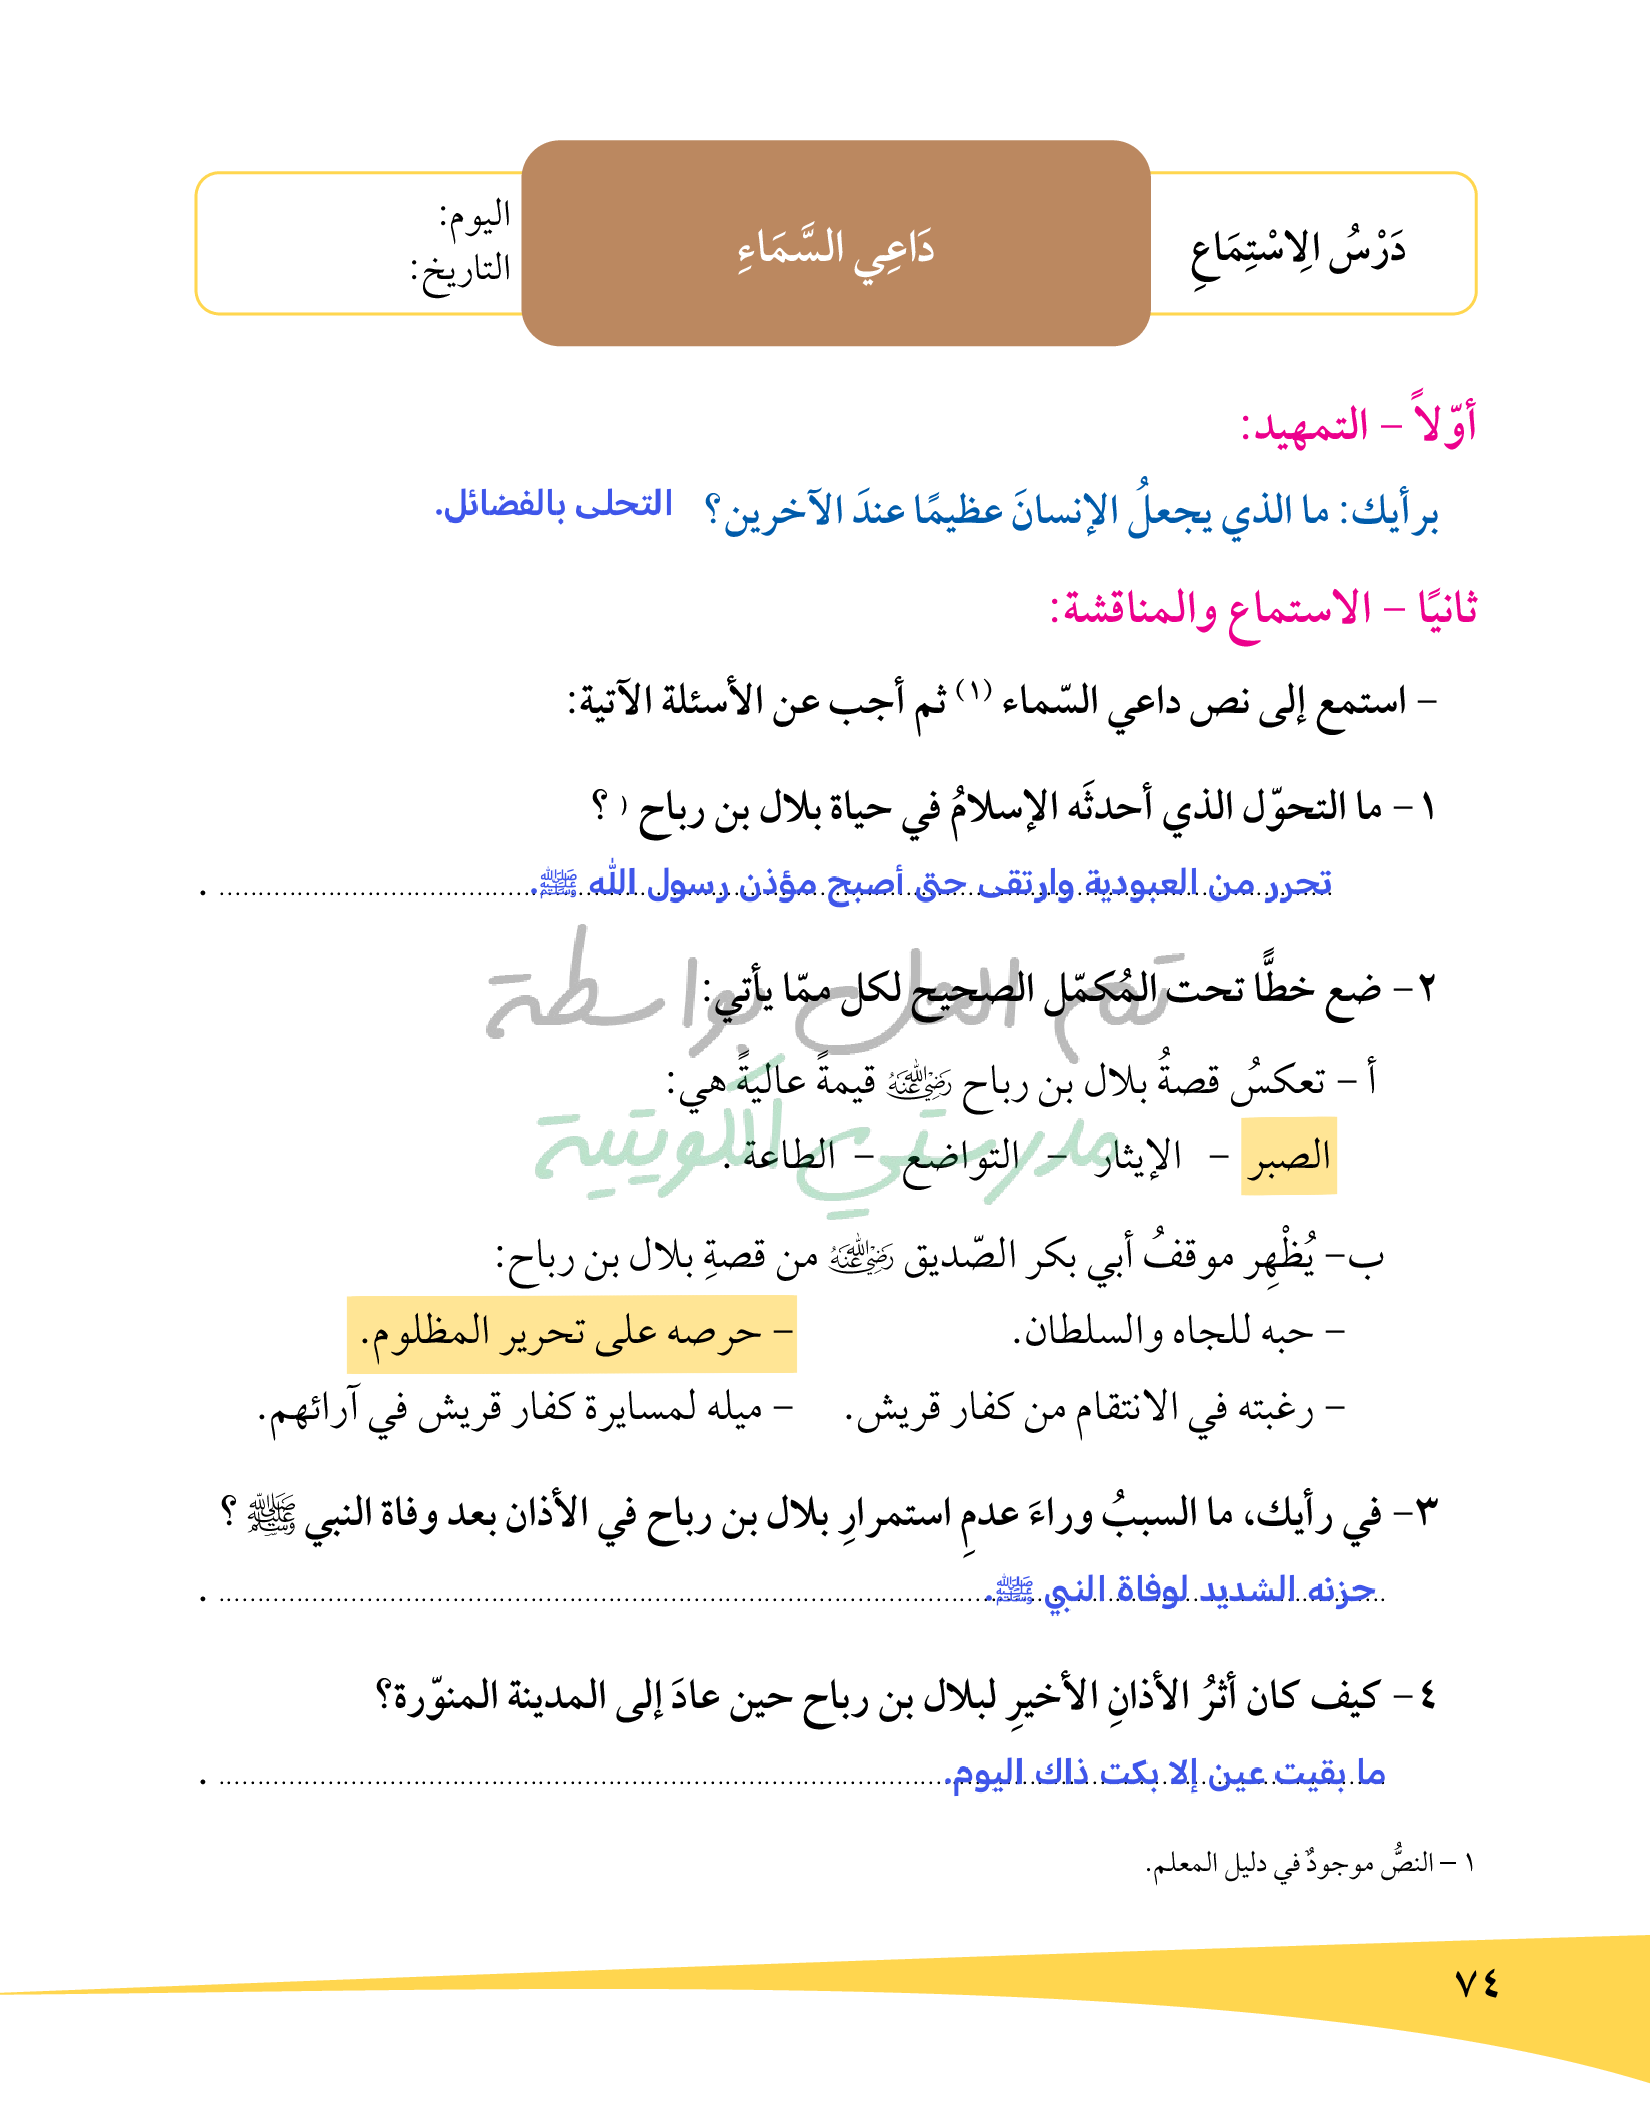 دَرْسُ الِاسْتِمَاعِ
دَاعِي السَّمَاءِ
اليوم:
التاريخ:
أوّلاً – التمهيد:
برأيك: ما الذي يجعلُ الإنسانَ عظيمًا عندَ الآخرين؟ التحلى بالفضائل.
ثانيًا – الاستماع والمناقشة:
– استمع إلى نص داعي السّماء (١) ثم أجب عن الأسئلة الآتية:
١– ما التحوّل الذي أحدثَه الإسلامُ في حياة بلال بن رباح ( ؟
تحرر من العبودية وارتقى حتى أصبح مؤذن رسول الله ﷺ.
٢– ضع خطًّا تحت المُكمّل الصحيح لكل ممّا يأتي:
تم الحل بواسطة
أ – تعكسُ قصةُ بلال بن رباح رَضِيَ اللهُ عَنْهُ قيمةً عاليةً هي:
مدرستي الكويتية
الصبر – الإيثار – التواضع – الطاعة .
ب– يُظْهِر موقفُ أبي بكر الصّديق رَضِيَ اللهُ عَنْهُ من قصةِ بلال بن رباح:
– حبه للجاه والسلطان. – حرصه على تحرير المظلوم.
– رغبته في الانتقام من كفار قريش. – ميله لمسايرة كفار قريش في آرائهم.
٣– في رأيك، ما السببُ وراءَ عدمِ استمرارِ بلال بن رباح في الأذان بعد وفاة النبي ﷺ ؟
حزنه الشديد لوفاة النبي ﷺ.
٤– كيف كان أثرُ الأذانِ الأخيرِ لبلال بن رباح حين عادَ إلى المدينة المنوّرة؟
ما بقيت عين إلا بكت ذاك اليوم.
١ – النصُّ موجودٌ في دليل المعلم.
٧٤